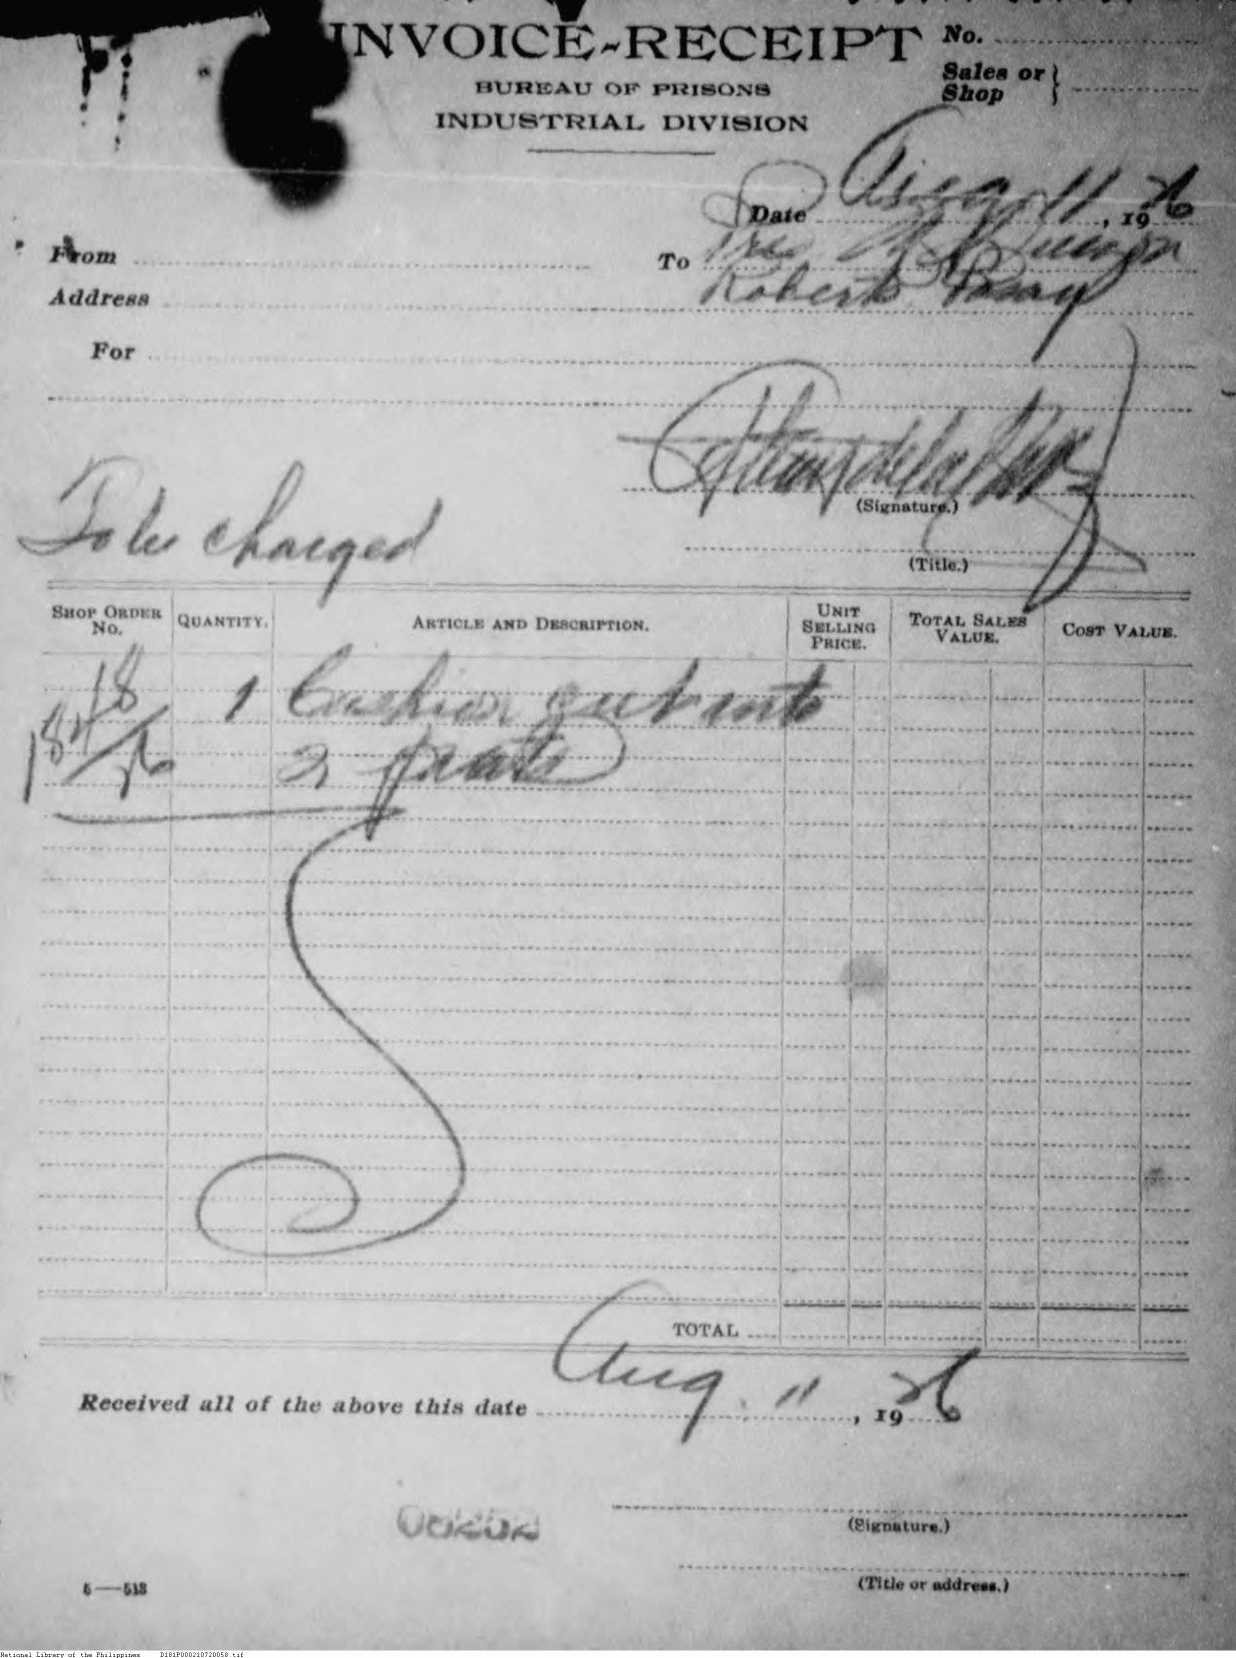 INVOICE-RECEIPT
No.
Sales or
Shop
BUREAU OF PRISONS
INDUSTRIAL DIVISION
Date Aug 11, 1926
From
To Mrs. M. L. Quezon
Address Roberts Pasay
For
(Signature.)
(Title.)
To be charged
SHOP ORDER No. QUANTITY. ARTICLE AND DESCRIPTION. UNIT SELLING PRICE. TOTAL SALES VALUE. COST VALUE.
18 1 Cushion cut into
184/26 2 parts
TOTAL
Received all of the above this date Aug. 11, 1926
(Signature.)
(Title or address.)
5—513
National Library of the Philippines D181P000210720058.tif